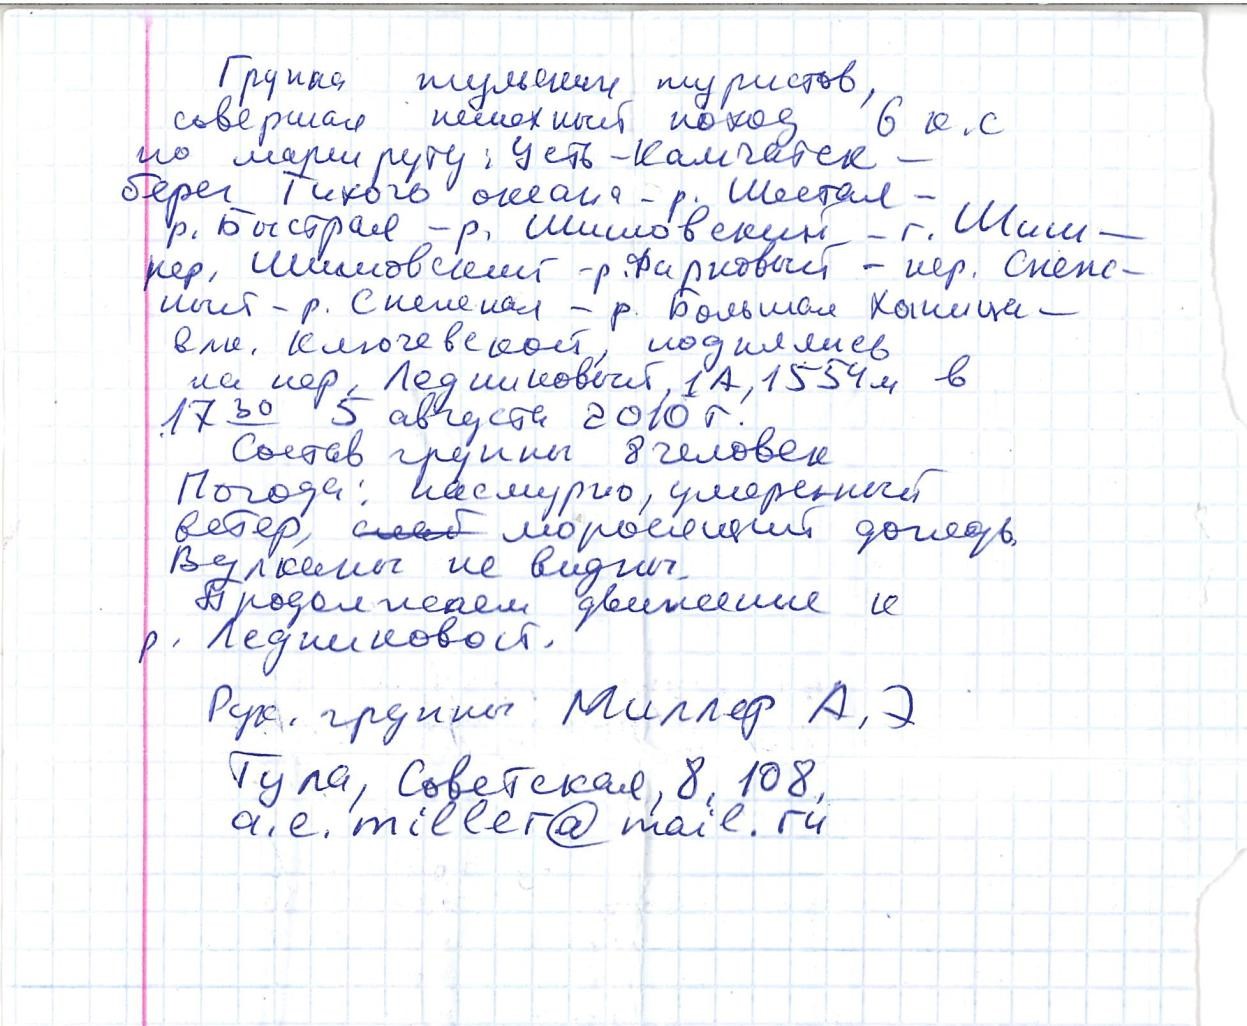 Группа тульских туристов,
совершая пешехный поход 6 к.с
по маршруту: Усть-Камчатск -
берег Тихого океана - р. Шестая -
р. Быстрая - р. Шишовский - г. Шиш -
пер. Шишовский - р. Фарновый - пер. Снеж-
ный - р. Снежная - р. Большая Хапица -
влк. Ключевской, поднялись
на пер. Ледниковый, 1А, 1554м в
17 30 5 августа 2010 г.
Состав группы 8 человек
Погода: пасмурно, умеренный
ветер, моросящий дождь.
Вулканы не видны.
Продолжаем движение к
р. Ледниковой.
Рук. группы Миллер А.Э
Тула, Советская, 8, 108,
a.e.miller@mail.ru